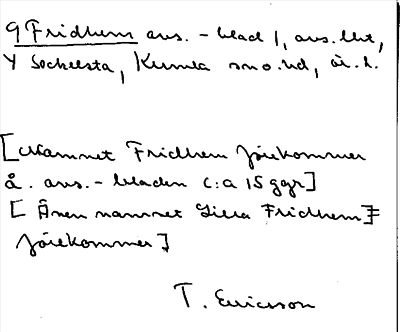 9 Fridhem avs. - blad 1, avs. lht,
Y Sockelsta, Kumla sn o. hd, Ör. l.
[Namnet Fridhem förekommer
å. avs. - bladen c:a 15 ggr]
[Även namnet Lilla Fridhem]
förekommer]
T. Ericsson